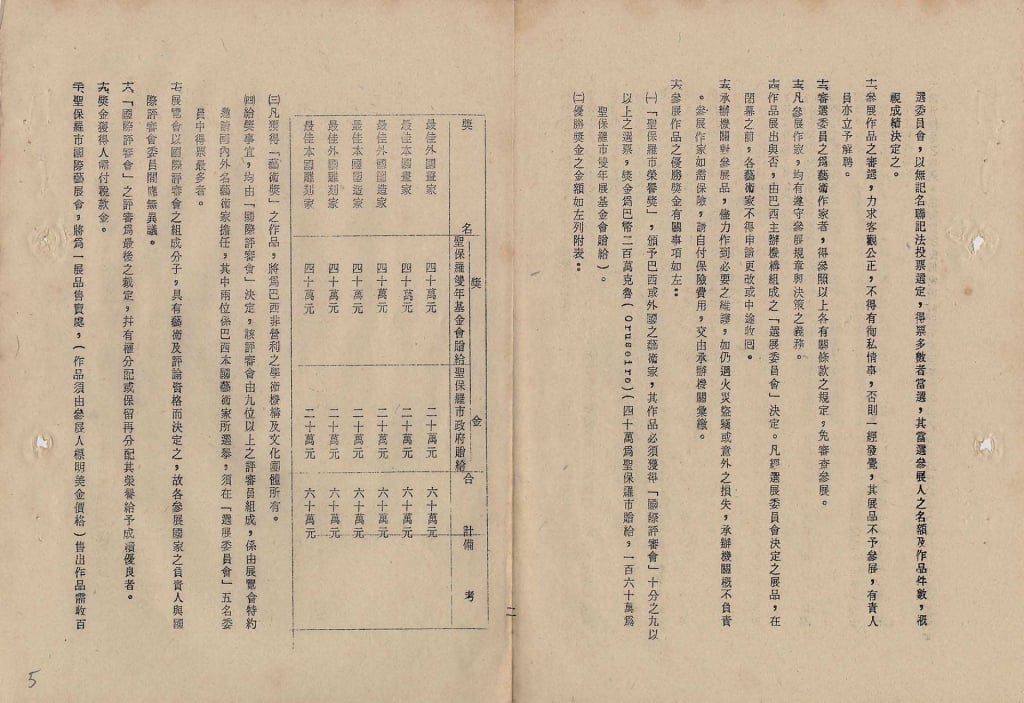 選委員會，以無記名聯記法投票選定，得票多數者當選，其當選參展人之名額及作品件數，視
視成績決定之。
二、參展作品之審選，力求客觀公正，不得有徇私情事，否則一經發覺，其展品不予參展，有責人
員亦立予解聘。
三、審選委員之為藝術作家者，得參照以上各有關條款之規定，免審查參展。
凡參展作家，均有遵守參展規章與決策之義務。
作品展出與否，由巴西主辦機構組成之「選展委員會」決定。凡經選展委員會決定之展品，在
閉幕之前，各藝術家不得申請更改或中途收回。
承辦機關對參展品，儘力作到必要之維護，如仍遇火災盜竊或意外之損失，承辦機關概不負責
。參展作家如需保險，請自付保險費用，交由承辦機關彙繳。
參展作品之優勝獎金有關事項如左：
㈠「聖保羅市榮譽獎」，頒予巴西或外國之藝術家，其作品必須獲得「國際評審會」十分之九以
以上之選票，獎金為巴幣二百萬克魯（Cruseiro）（四十萬為聖保羅市贈給，一百六十萬為
聖保羅市雙年展基金會贈給）。
㈡優勝獎金之金額如左列附表：
二
獎　名　獎　金　合　計　備　考
聖保羅雙年基金會贈給　聖保羅市政府贈給
最佳外國畫家　四十萬元　二十萬元　六十萬元
最佳本國畫家　四十萬元　二十萬元　六十萬元
最佳外國塑造家　四十萬元　二十萬元　六十萬元
最佳本國塑造家　四十萬元　二十萬元　六十萬元
最佳外國雕刻家　四十萬元　二十萬元　六十萬元
最佳本國雕刻家　四十萬元　二十萬元　六十萬元
㈢凡獲得「藝術獎」之作品，將為巴西非營利之學術機構及文化團體所有。
㈣給獎事宜，均由「國際評審會」決定，該評審會由九位以上之評審員組成，係由展覽會特約
邀請國內外名藝術家擔任，其中兩位係巴西本國藝術家所選舉，須在「選展委員會」五名委
員中得票最多者。
展覽會以國際評審會之組成分子，具有藝術及評論資格而決定之，故各參展國家之負責人與國
際評審會委員間應無異議。
「國際評審會」之評審為最後之裁定，并有權分配或保留再分配其榮譽給予成績優良者。
獎金獲得人需付稅款金。
聖保羅市國際藝展會，將為一展品售賣處，（作品須由參展人標明美金價格）售出作品需收百
5